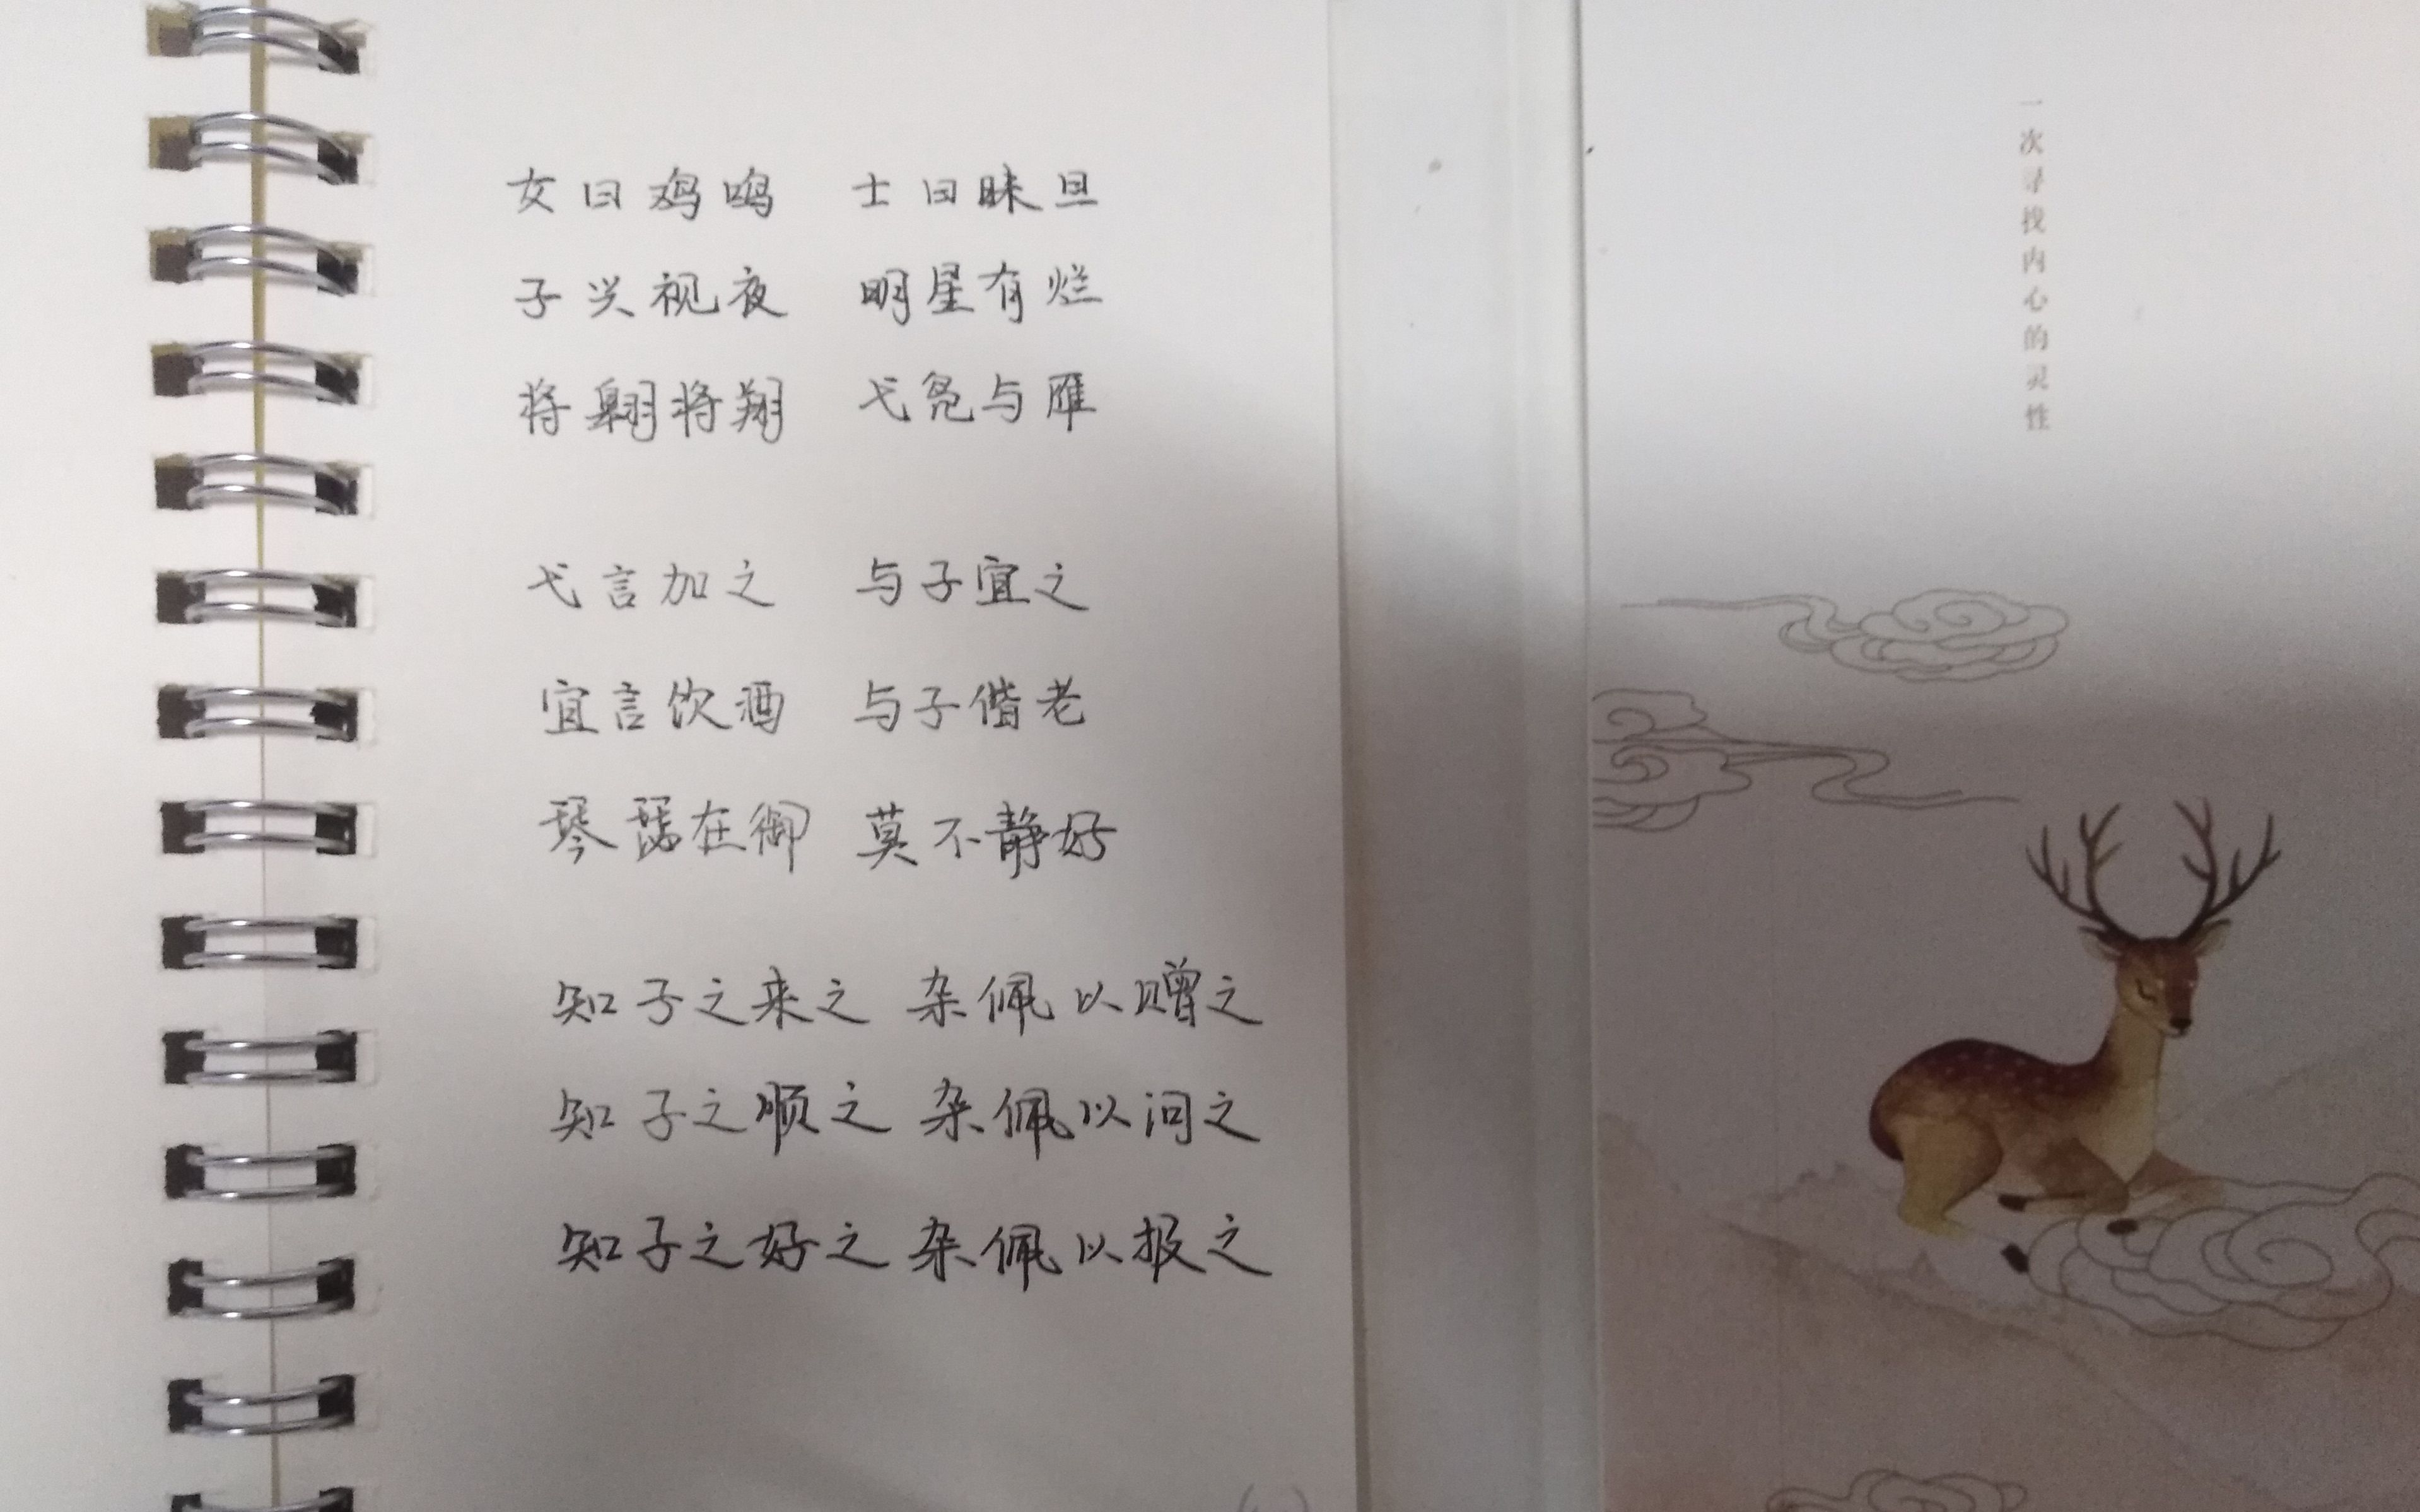 女曰鸡鸣 士曰昧旦
子兴视夜 明星有烂
将翱将翔 弋凫与雁
弋言加之 与子宜之
宜言饮酒 与子偕老
琴瑟在御 莫不静好
知子之来之 杂佩以赠之
知子之顺之 杂佩以问之
知子之好之 杂佩以报之
一次寻找内心的灵性